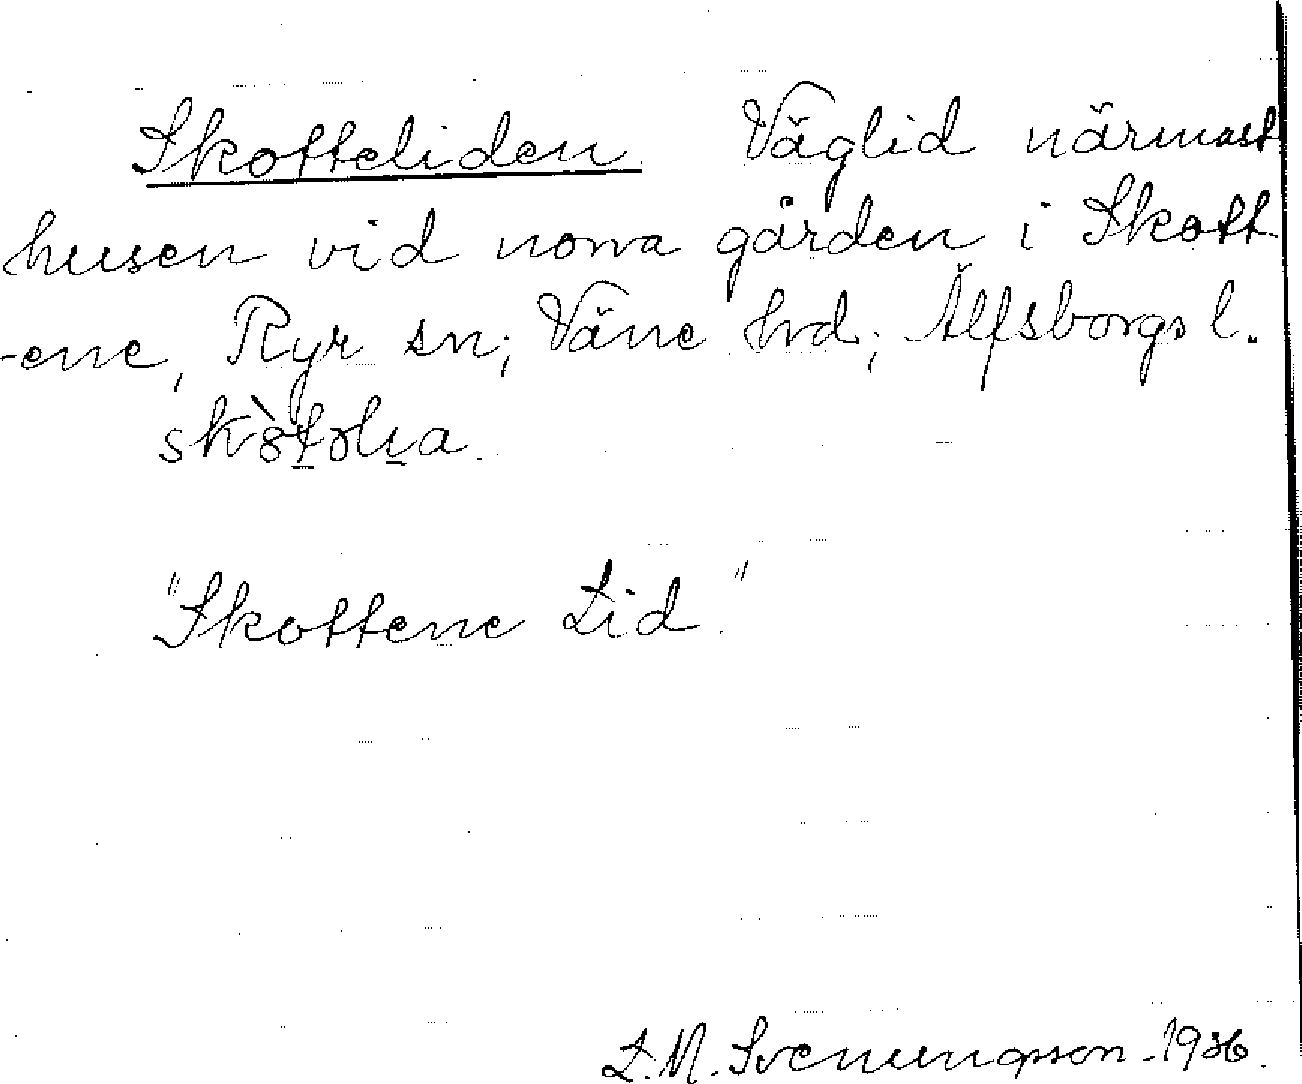 Skotteliden. Väglid närmast
husen vid norra gården i Skott
-ene, Ryr sn; Väne hd; Älfsborgs l.
"Skottene Lid"
L.M. Svenungsson -1936.